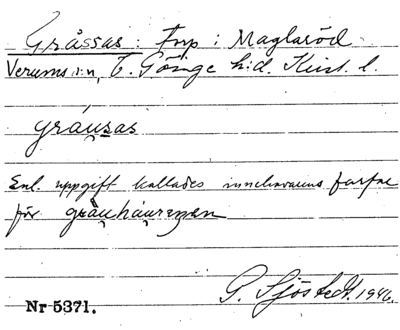 Gråssas: Frp i Maglaröd
Verums s:n, V. Göinge h:d. Krist. l.
gráu̯sas
Enl. uppgift kallades innehavarens farfar
för gråu̯háu̯rezen
G. Sjöstedt. 1946.
Nr 5371.